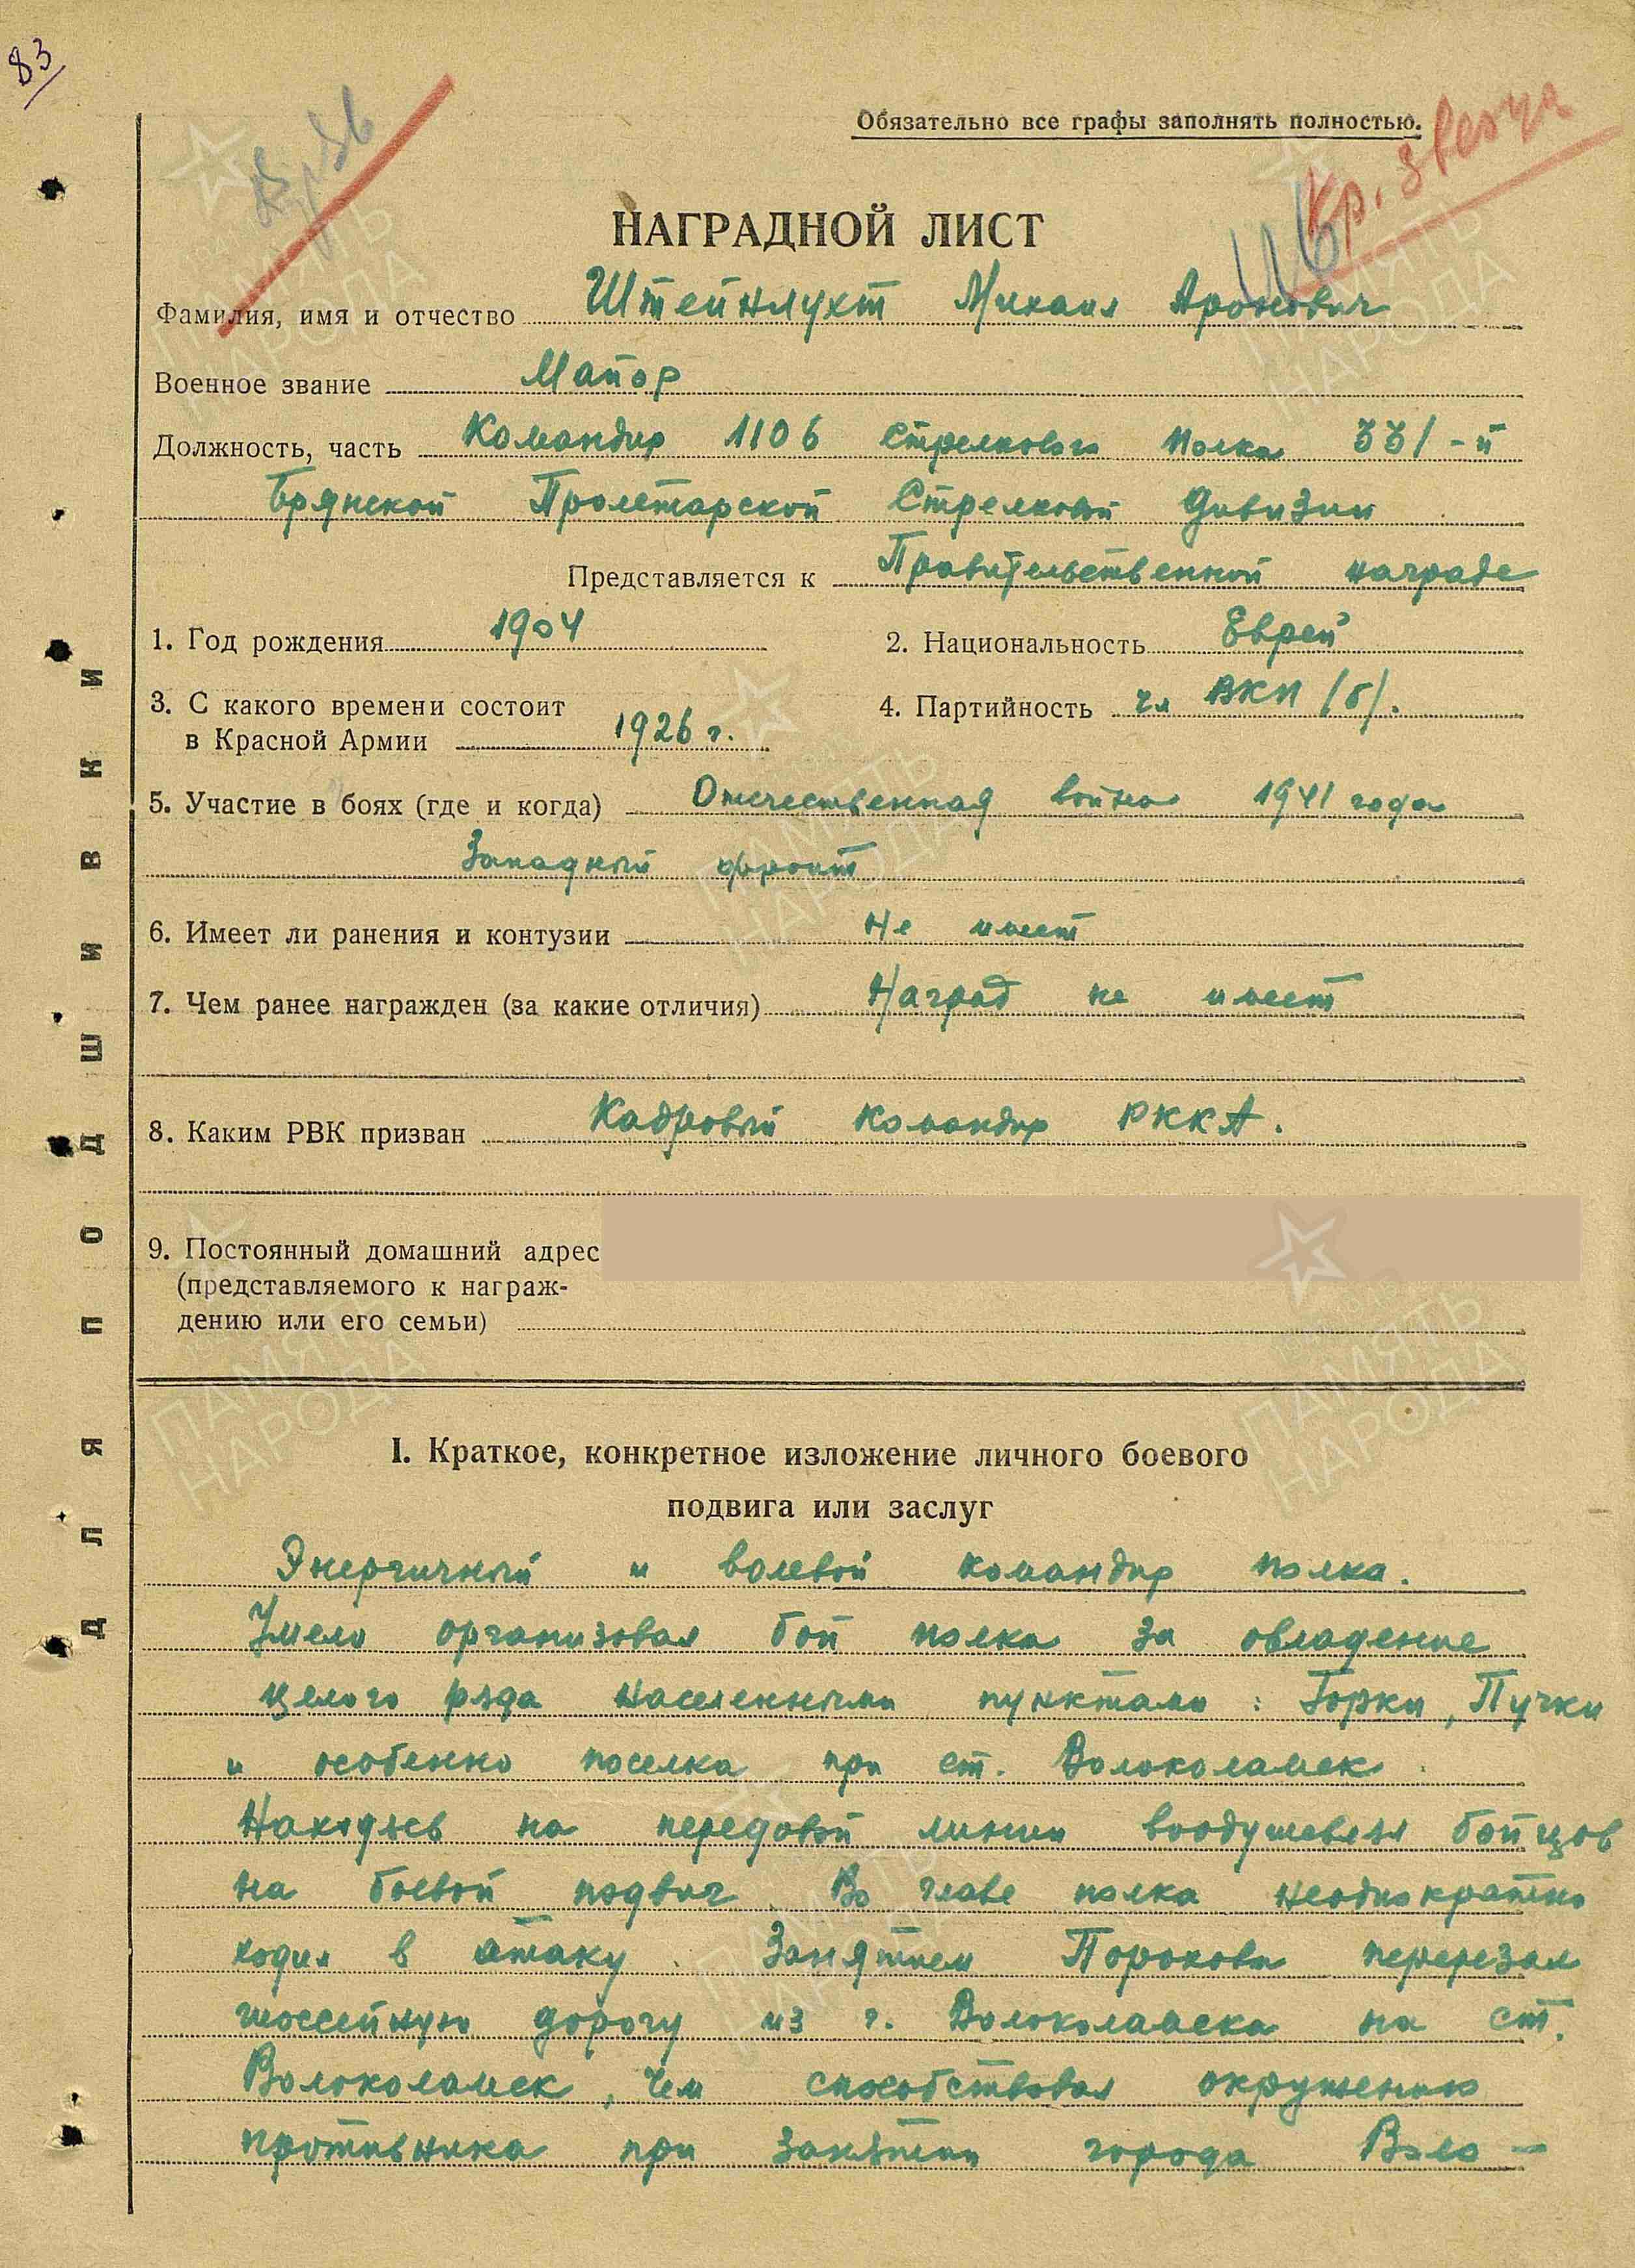 83
Обязательно все графы заполнять полностью.
Кр. звезда
НАГРАДНОЙ ЛИСТ
Фамилия, имя и отчество Штейнлухт Михаил Аронович
Военное звание Майор
Должность, часть Командир 1106 стрелкового полка 331-й
Брянской Пролетарской Стрелковой дивизии
Представляется к Правительственной награде
1. Год рождения 1904
2. Национальность Еврей
3. С какого времени состоит
в Красной Армии 1926 г.
4. Партийность чл ВКП /б/.
5. Участие в боях (где и когда) Отечественная война 1941 года
Западный фронт
6. Имеет ли ранения и контузии Не имеет
7. Чем ранее награжден (за какие отличия) Наград не имеет
8. Каким РВК призван Кадровый командир РККА.
9. Постоянный домашний адрес
(представляемого к награж-
дению или его семьи)
I. Краткое, конкретное изложение личного боевого
подвига или заслуг
Энергичный и волевой командир полка.
Умело организовал бой полка за овладение
целого ряда населенными пунктами: Горки, Пучки
и особенно поселка при ст. Волоколамск.
Находясь на передовой линии воодушевлял бойцов
на боевой подвиг. Во главе полка неоднократно
ходил в атаку. Занятием Порохова перерезал
шоссейную дорогу из г. Волоколамска на ст.
Волоколамск, чем способствовал окружению
противника при занятии города Воло-
ДЛЯ ПОДШИВКИ
ПАМЯТЬ НАРОДА